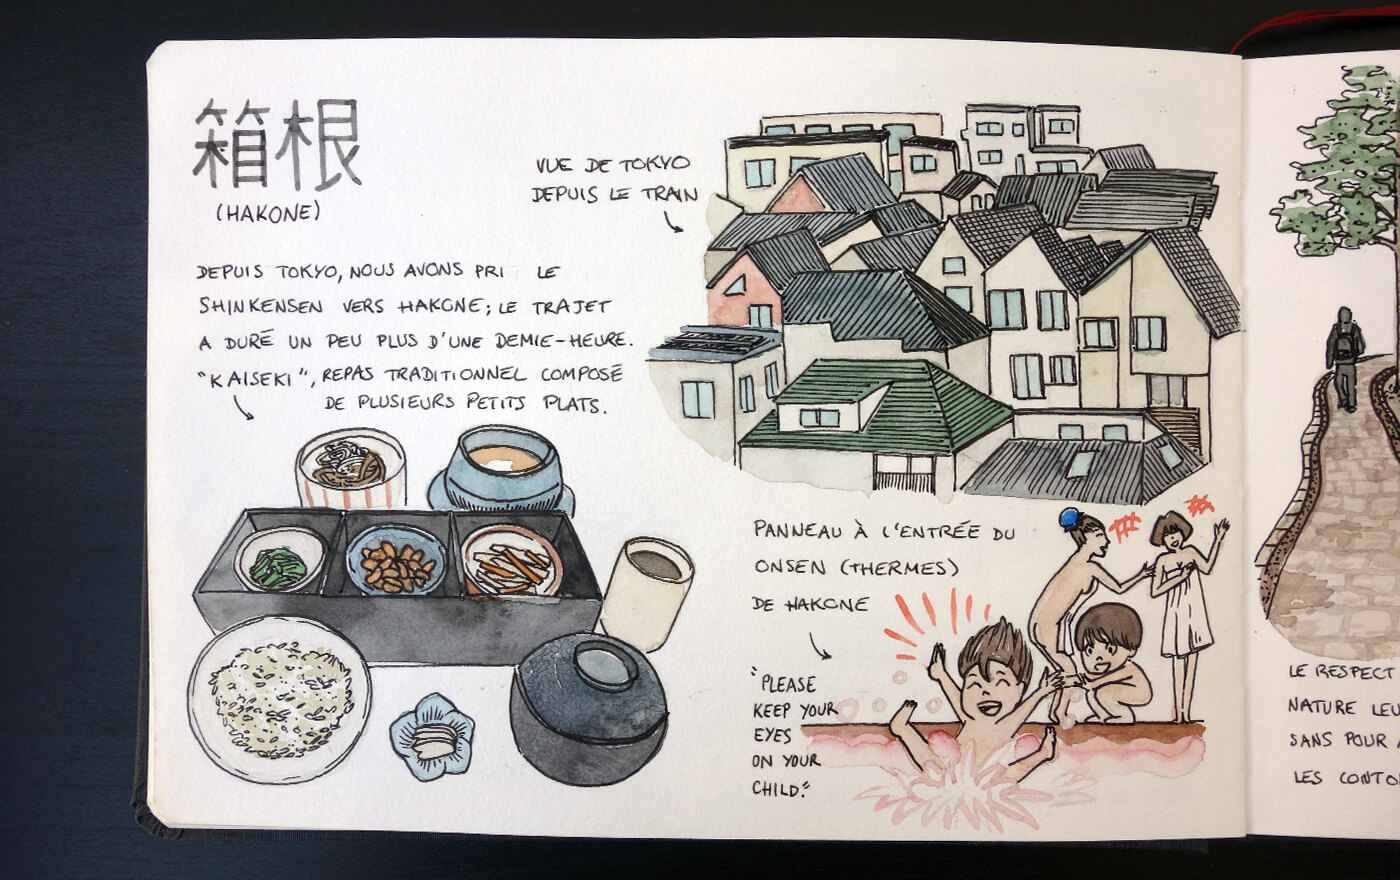 箱根
(HAKONE)
DEPUIS TOKYO, NOUS AVONS PRI LE
SHINKENSEN VERS HAKONE; LE TRAJET
A DURÉ UN PEU PLUS D'UNE DEMIE-HEURE.
"KAISEKI", REPAS TRADITIONNEL COMPOSÉ
DE PLUSIEURS PETITS PLATS.
VUE DE TOKYO
DEPUIS LE TRAIN
PANNEAU À L'ENTRÉE DU
ONSEN (THERMES)
DE HAKONE
"PLEASE
KEEP YOUR
EYES
ON YOUR
CHILD."
LE RESPECT
NATURE LEU
SANS POUR A
LES CONTO